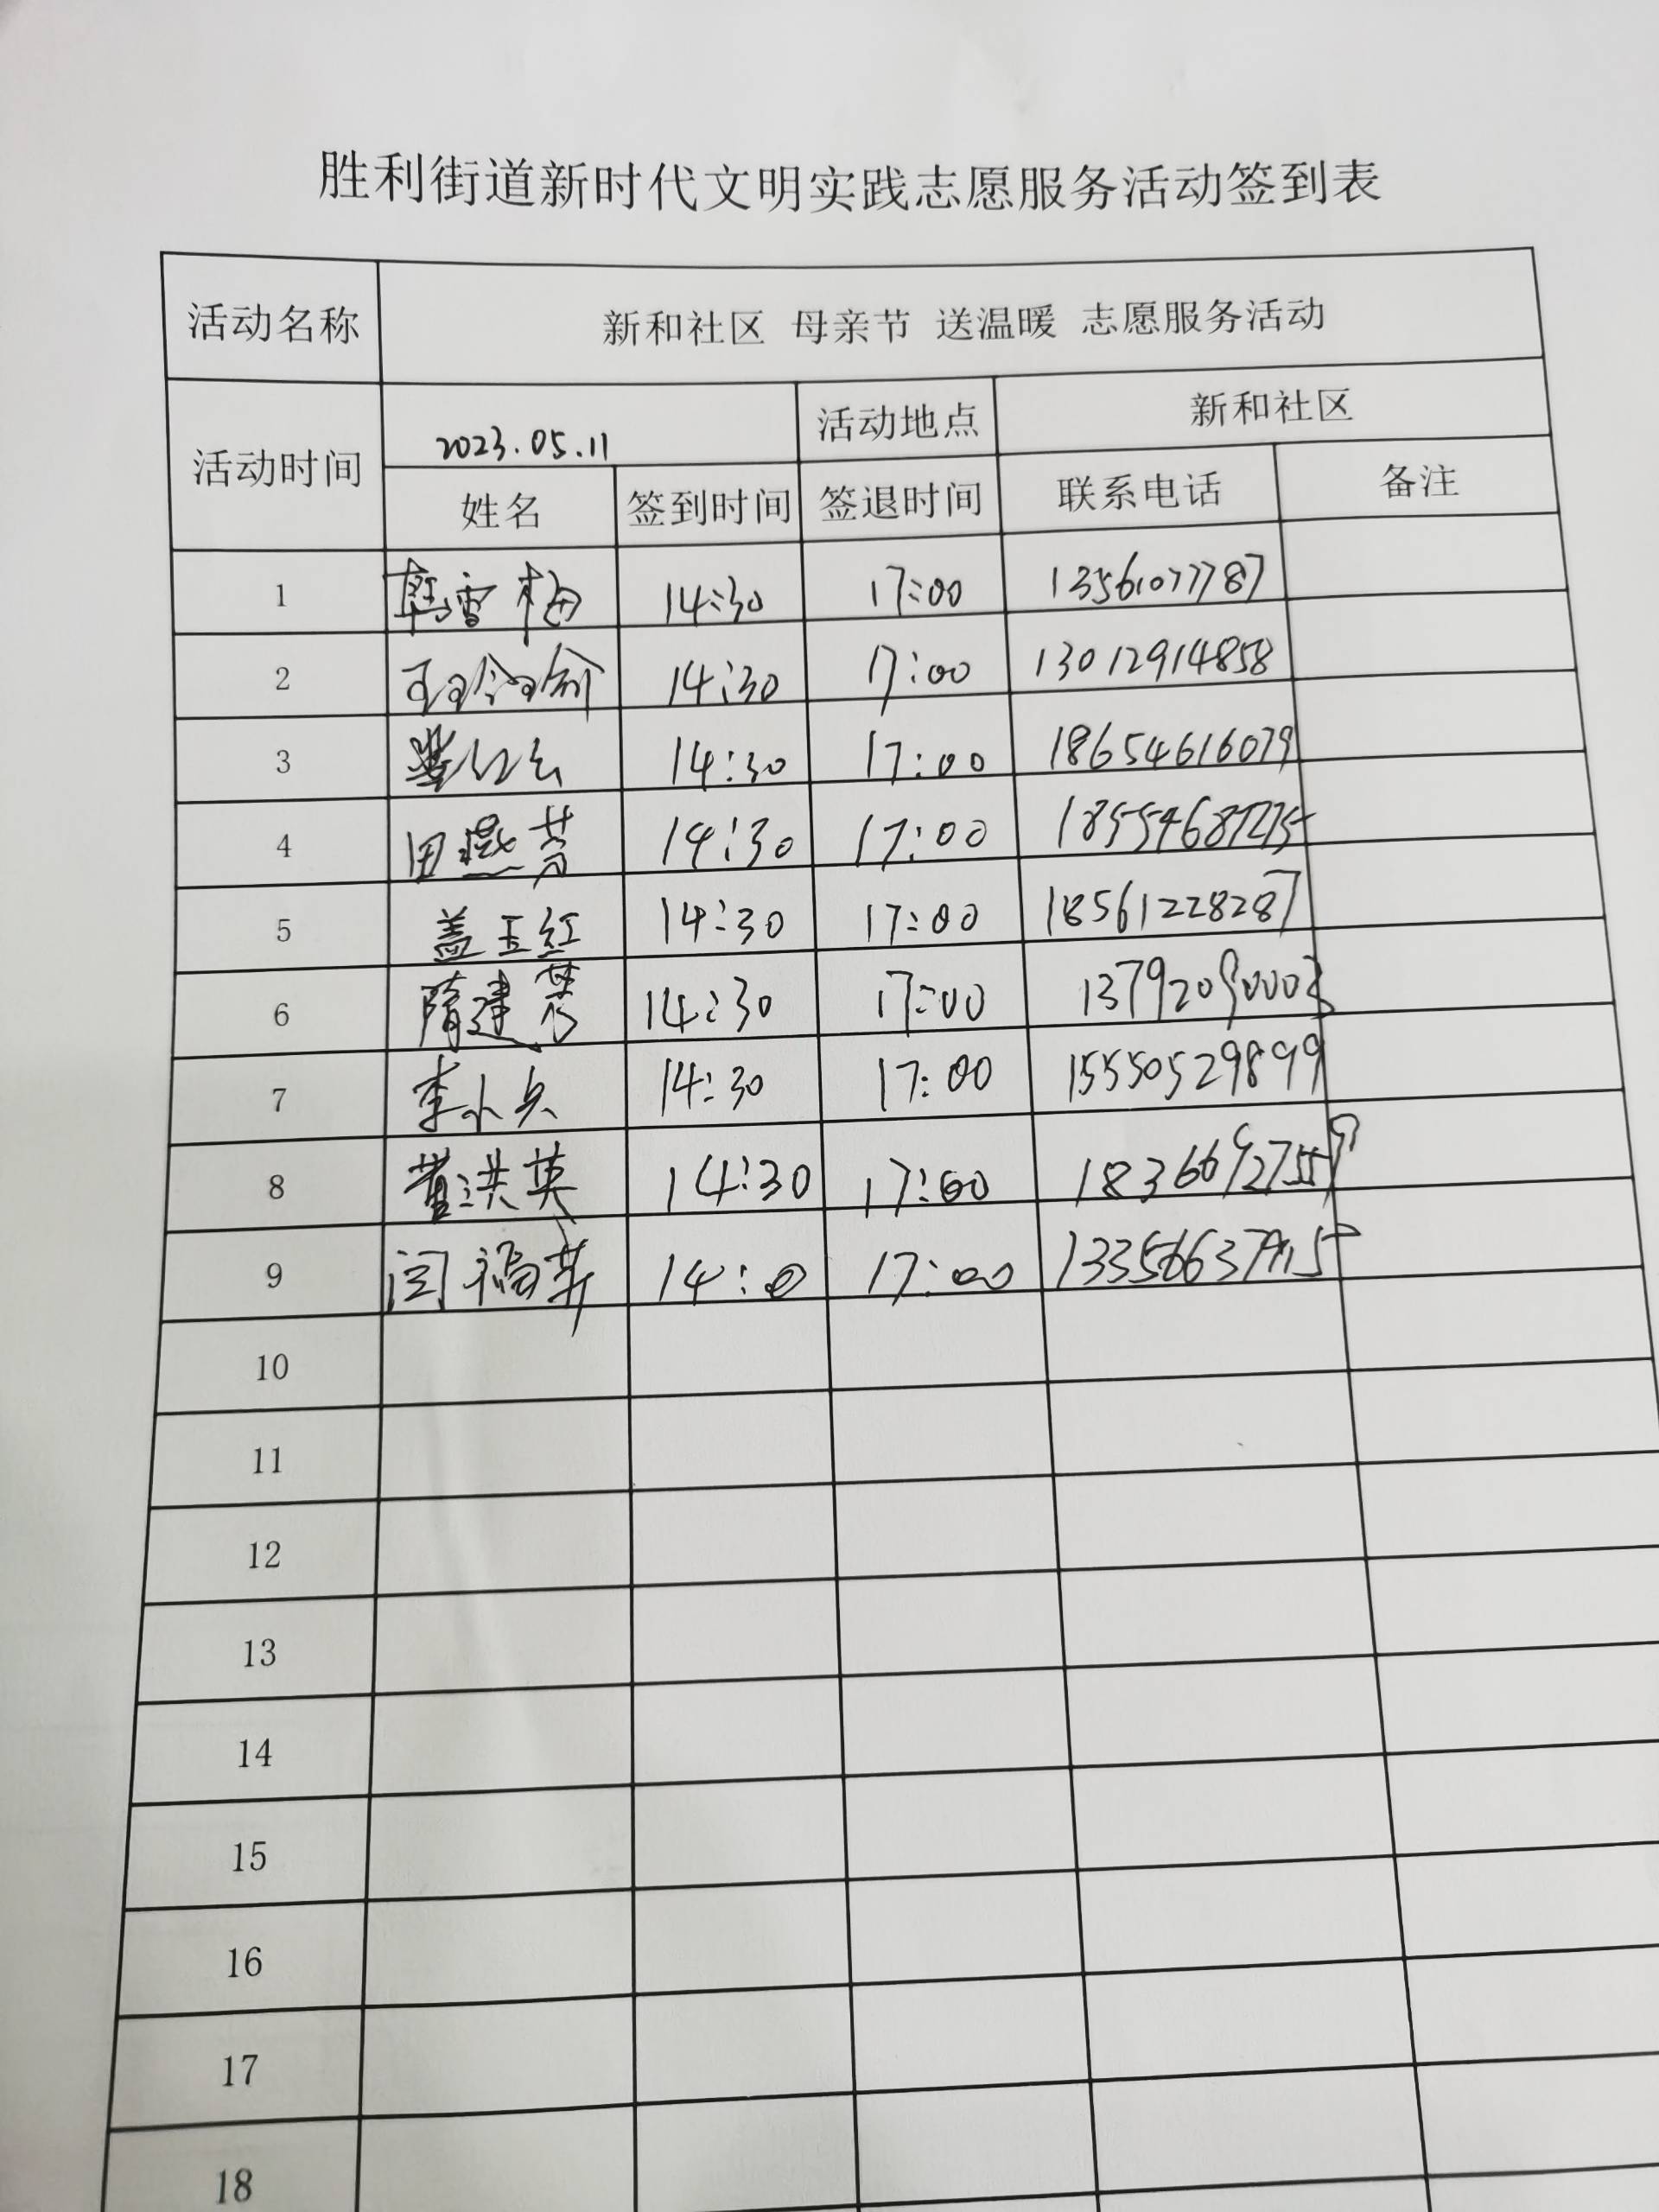 胜利街道新时代文明实践志愿服务活动签到表
活动名称 新和社区 母亲节 送温暖 志愿服务活动
活动时间 2023.05.11 活动地点 新和社区
姓名 签到时间 签退时间 联系电话 备注
1 韩雪梅 14:30 17:00 13561077787
2 14:30 17:00 13012914858
3 14:30 17:00 18654616079
4 田燕芳 14:30 17:00
5 盖玉红 14:30 17:00 18561228287
6 隋建芳 14:30 17:00
7 李小兵 14:30 17:00 15550529899
8 董洪英 14:30 17:00
9 闫福英 17:00
10
11
12
13
14
15
16
17
18